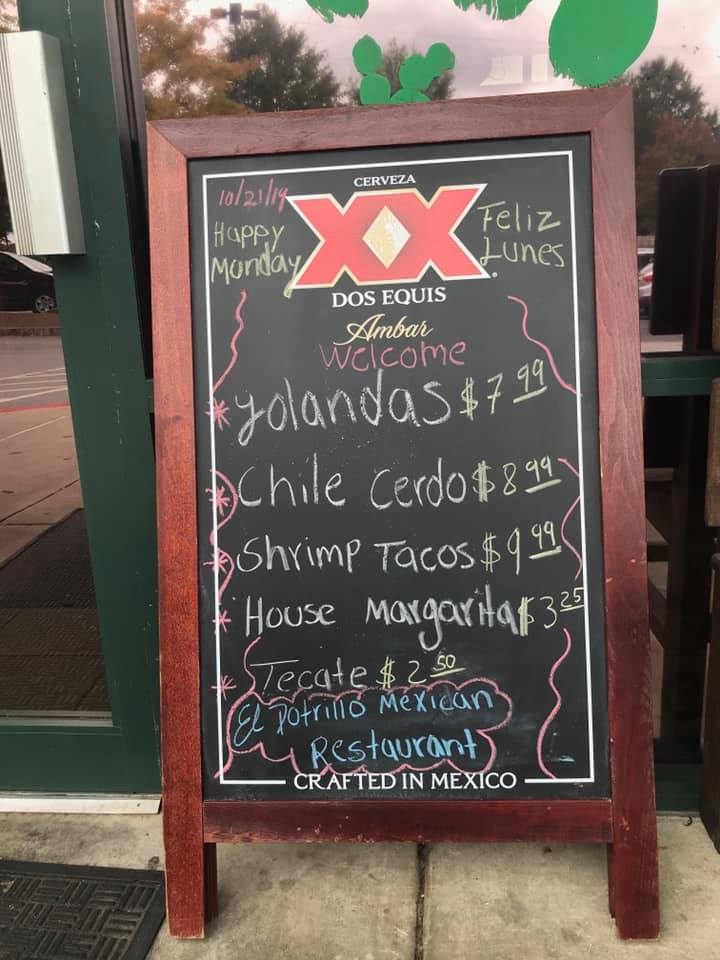 10/21/19
CERVEZA
XX
Happy
Monday
Feliz
Lunes
DOS EQUIS
Ambar
Welcome
* yolandas $7 99
* Chile Cerdo $8 99
* Shrimp Tacos $9 99
* House Margarita $3 25
* Tecate $2 50
El Potrillo Mexican
Restaurant
CRAFTED IN MEXICO